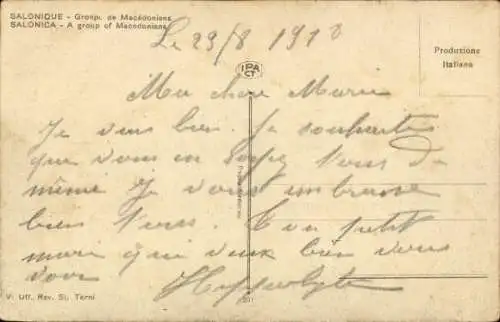 SALONIQUE - Group. de Macédoniens
SALONICA - A group of Macedonians
Produzione
Italiana
IPA
CT
Le 29/8 1918
Ma chère Marie
Je vais bien. Je souhaite
que vous en soyez tous de
même Je vous embrasse
bien tous. Ton petit
mari qui veux bien vous
voir Hyppolyte
V. Uff. Rev. St. Terni